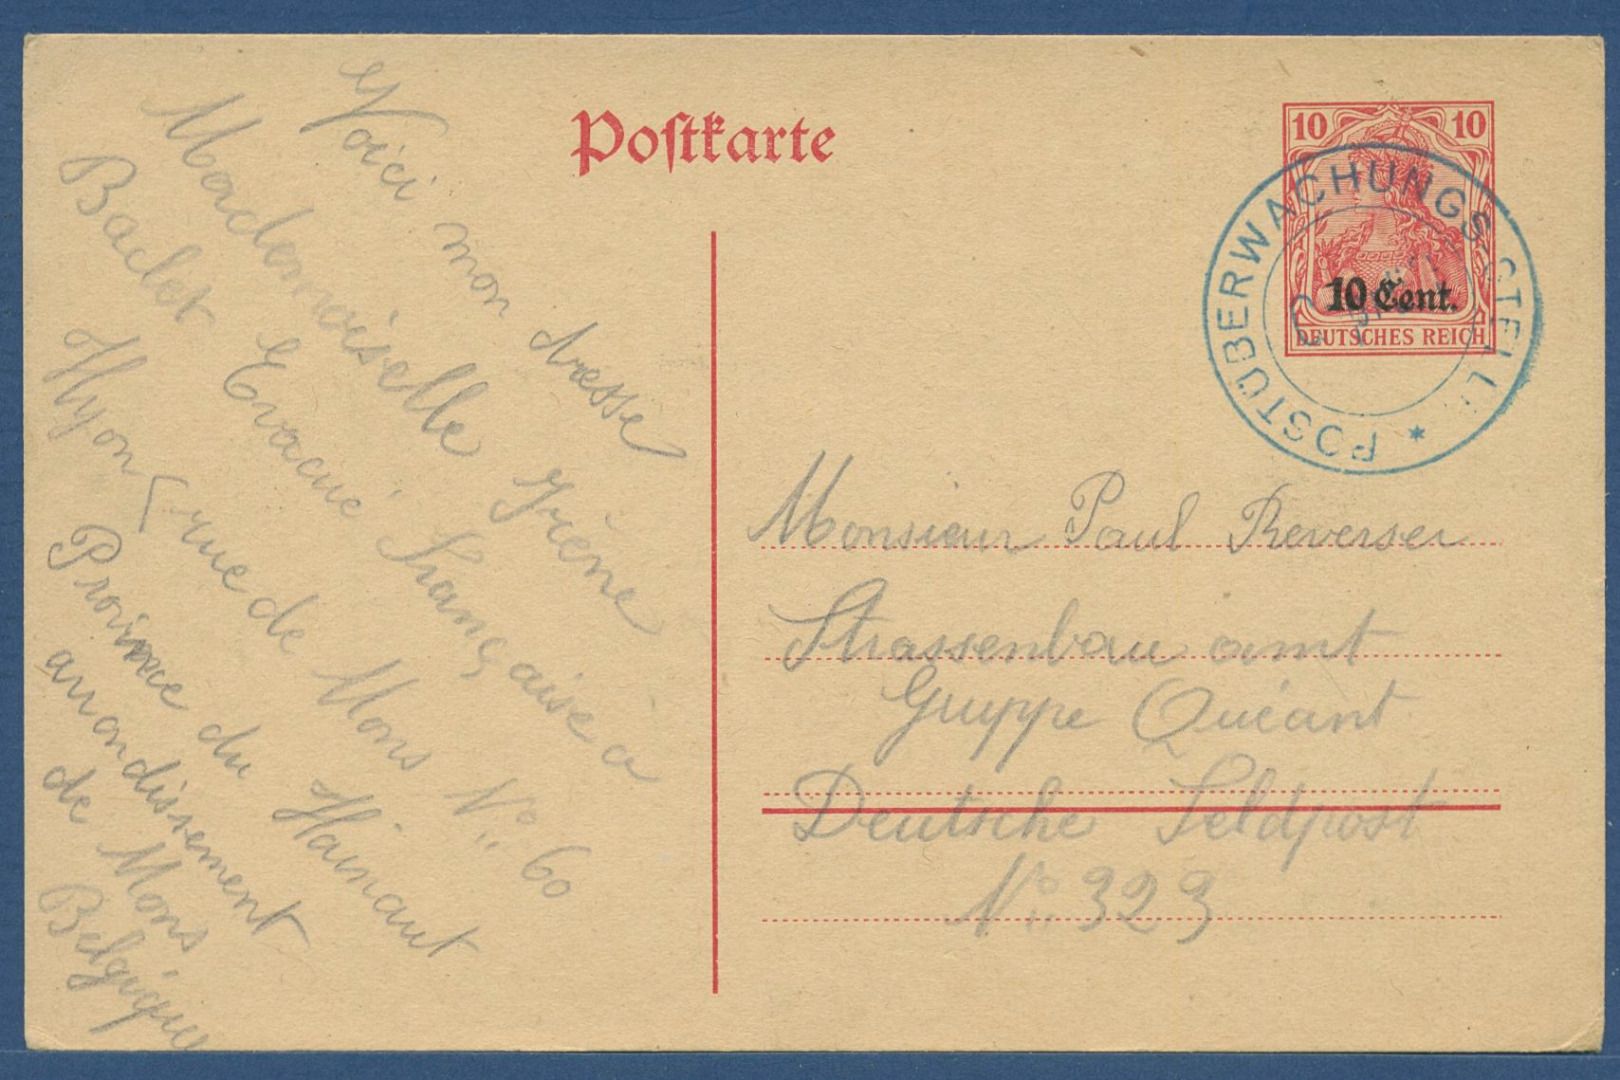 Postkarte
10 10
10 Cent.
DEUTSCHES REICH
POSTÜBERWACHUNGSSTELLE *
Voici mon adresse
Mademoiselle Irène
Baclet Evacué Française à
Hyon (rue de Mons N° 60
Province du Hainaut
arrondissement
de Mons
Belgique
Monsieur Paul Reverser
Strassenbau amt
Gruppe Quéant
Deutsche Feldpost
N° 323